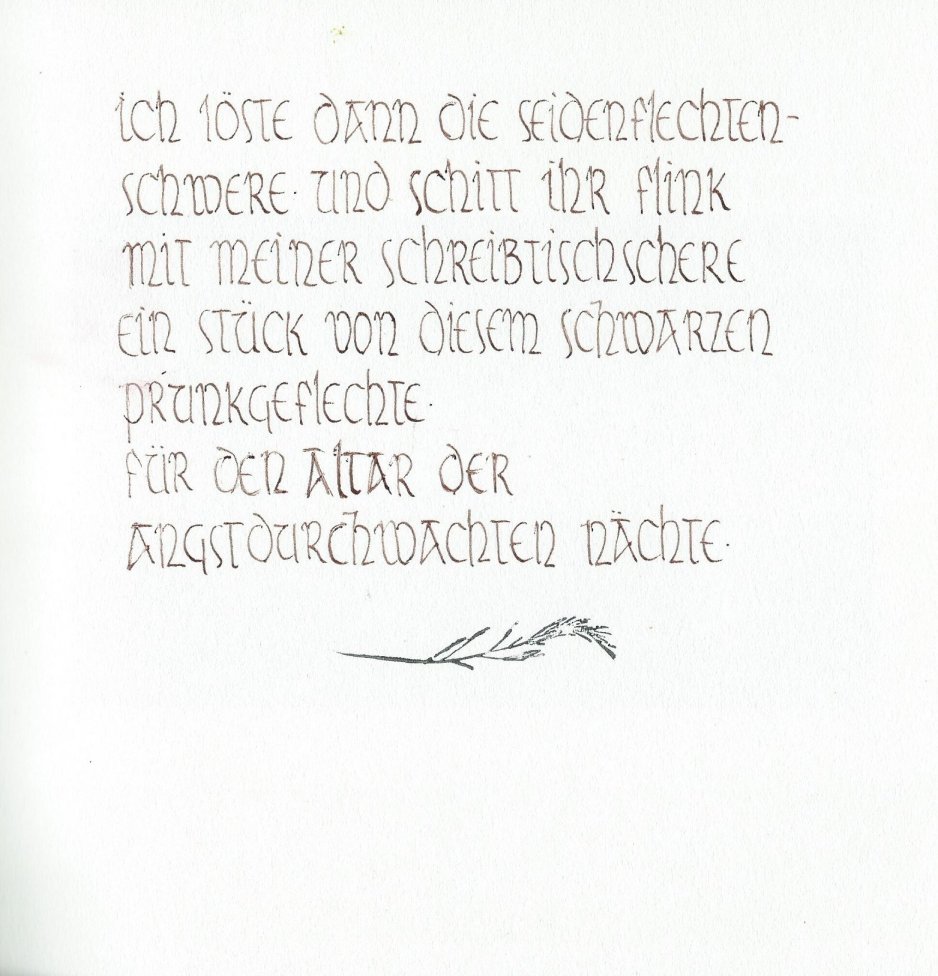 ich löste dann die seidenflechten-
schwere. und schitt ihr flink
mit meiner schreibtischschere
ein stück von diesem schwarzen
prunkgeflechte.
für den altar der
angstdurchwachten nächte.